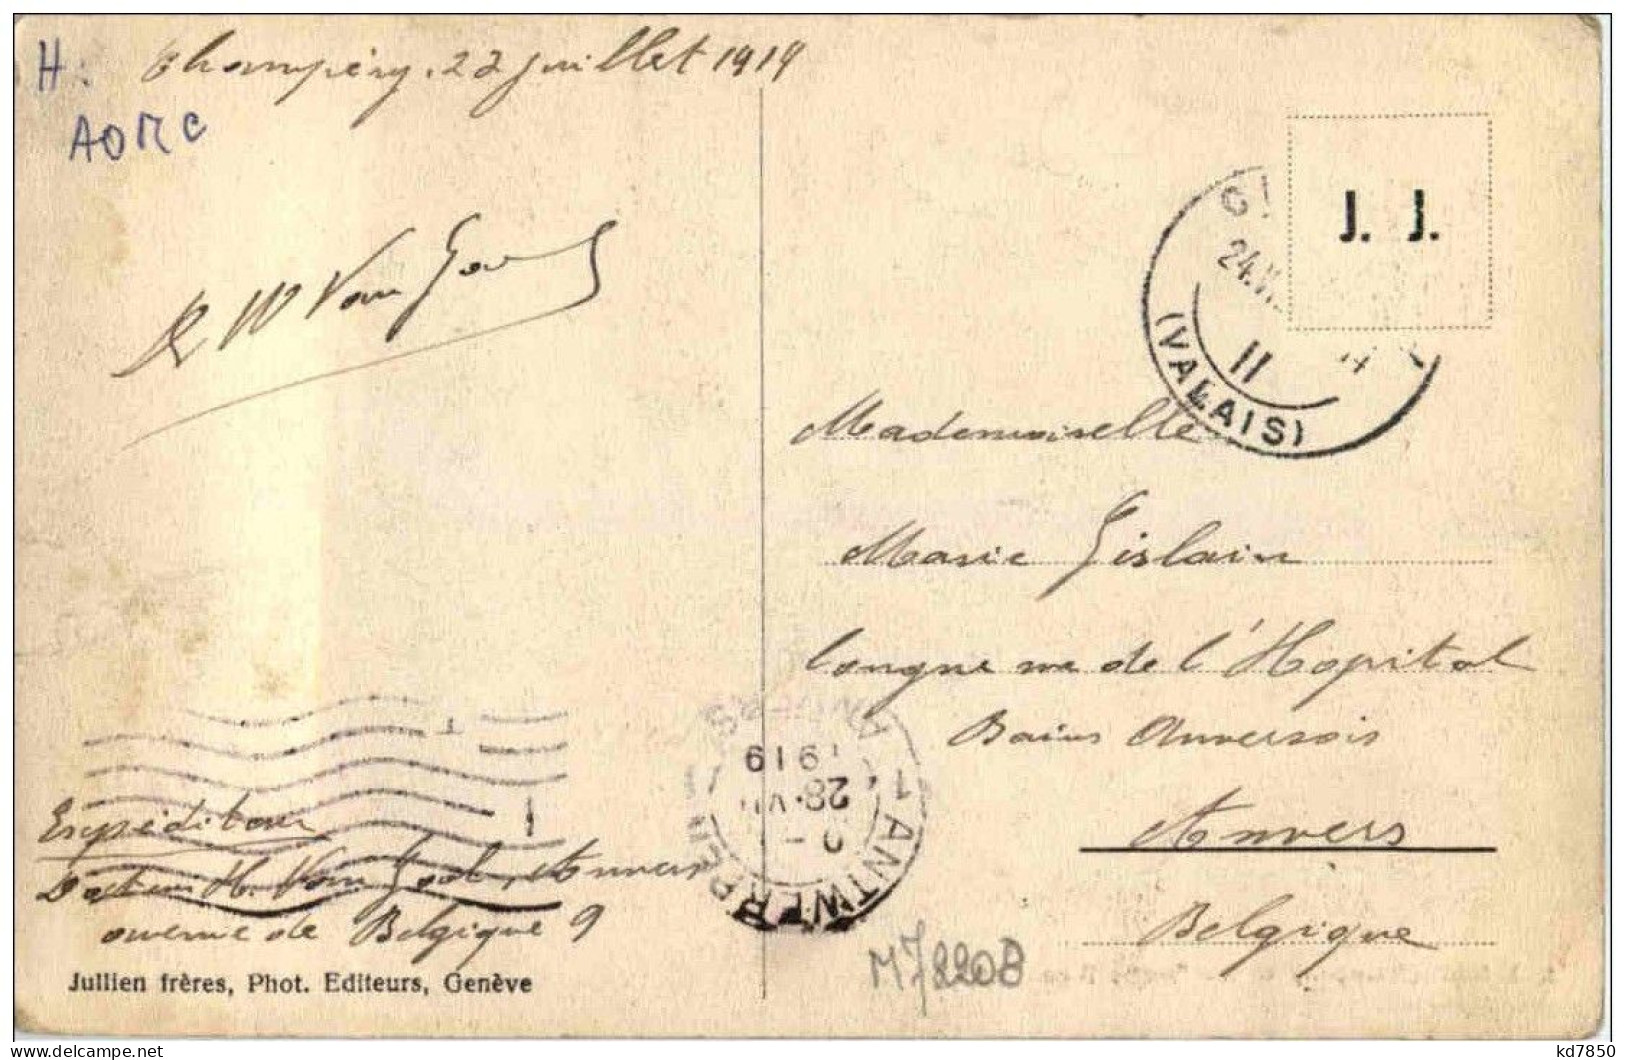 H:
Champéry. 22 juillet 1919
AORC
J. J.
24.VII
11
(VALAIS)
R W Van Gool
Mademoiselle
Marie Gislain
longue rue de l'Hopital
Bains Anversois
Anvers
Belgique
1 ANTWERPEN
ANVERS
28.VII
1919
Expéditeur
Docteur H. Van Gool, Anvers
avenue de Belgique 9
Jullien frères, Phot. Editeurs, Genève
M7220B
delcampe.net
kd7850